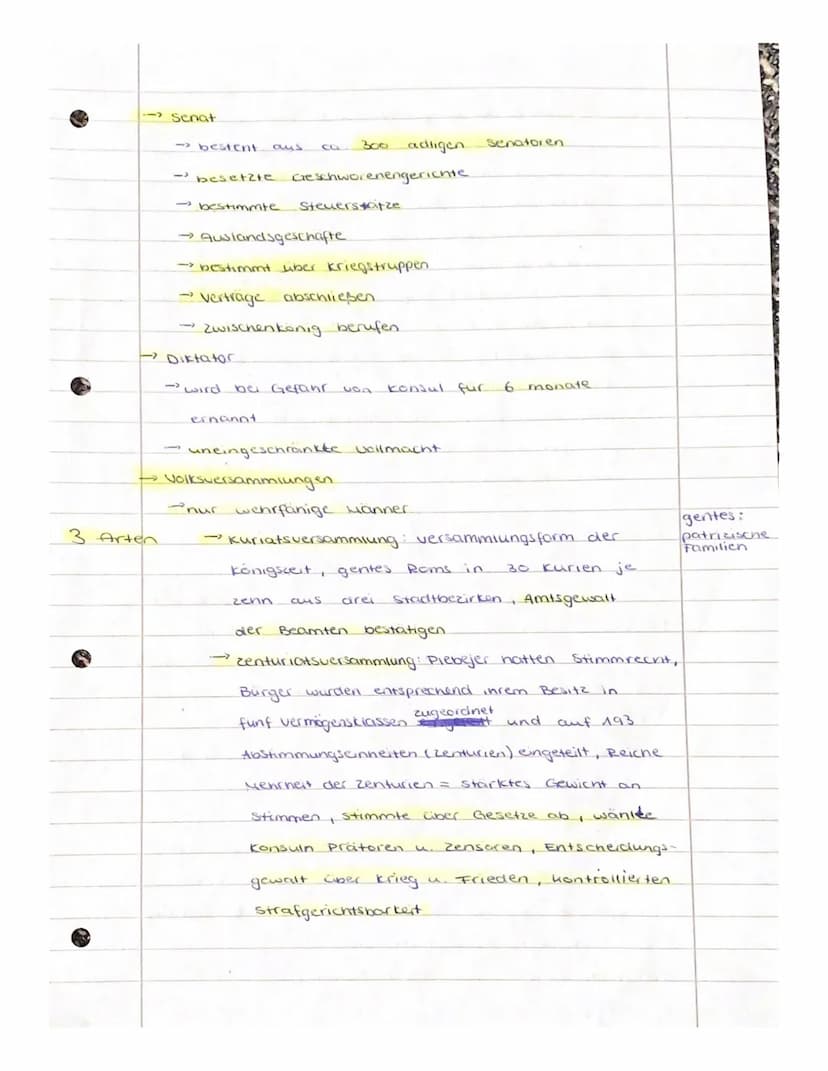 → Senat
→ besteht aus ca 300 adligen Senatoren
→ besetzte Geschworenengerichte
→ bestimmte Steuersätze
→ Auslandsgeschäfte
→ bestimmt über Kriegstruppen
→ Verträge abschließen
→ Zwischenkönig berufen
→ Diktator
→ wird bei Gefahr von Konsul für 6 monate
ernannt
→ uneingeschränkte Vollmacht
→ Volksversammlungen
→ nur wehrfähige Männer
gentes:
patrizische
Familien
3 Arten → Kuriatsversammlung: Versammlungsform der
Königszeit, gentes Roms in 30 Kurien je
zehn aus drei Stadtbezirken, Amtsgewalt
der Beamten bestätigen
→ Zenturiatsversammlung: Plebejer hatten Stimmrecht,
Bürger wurden entsprechend ihrem Besitz in
fünf Vermögensklassen zugeordnet und auf 193
Abstimmungseinheiten (Zenturien) eingeteilt, Reiche
Mehrheit der Zenturien = starktes Gewicht an
Stimmen, stimmte über Gesetze ab, wählte
Konsuln Prätoren u. Zensoren, Entscheidungs-
gewalt über Krieg u. Frieden, kontrollierten
Strafgerichtsbarkeit